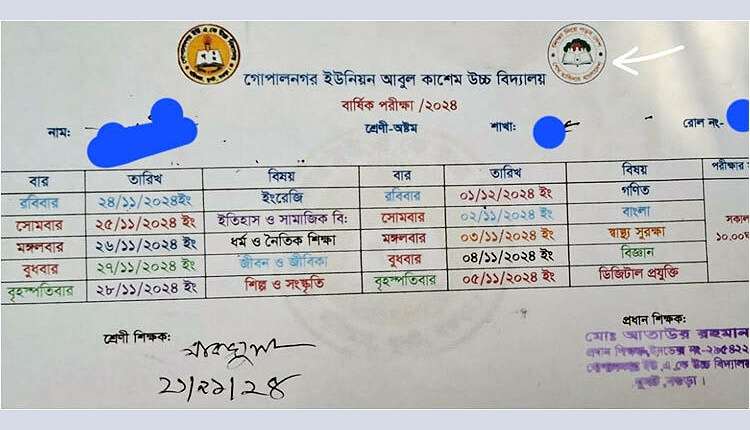 গোপালনগর ইউনিয়ন আবুল কাশেম উচ্চ বিদ্যালয়
বার্ষিক পরীক্ষা /২০২৪
নাম: শ্রেণী-অষ্টম শাখা: রোল নং-
বার তারিখ বিষয় বার তারিখ বিষয় পরীক্ষার
রবিবার ২৪/১১/২০২৪ইং ইংরেজি রবিবার ০১/১২/২০২৪ ইং গণিত
সোমবার ২৫/১১/২০২৪ ইং ইতিহাস ও সামাজিক বি: সোমবার ০২/১১/২০২৪ ইং বাংলা
মঙ্গলবার ২৬/১১/২০২৪ ইং ধর্ম ও নৈতিক শিক্ষা মঙ্গলবার ০৩/১১/২০২৪ ইং স্বাস্থ্য সুরক্ষা সকাল
বুধবার ২৭/১১/২০২৪ ইং জীবন ও জীবিকা বুধবার ০৪/১১/২০২৪ ইং বিজ্ঞান ১০.০০
বৃহস্পতিবার ২৮/১১/২০২৪ ইং শিল্প ও সংস্কৃতি বৃহস্পতিবার ০৫/১১/২০২৪ ইং ডিজিটাল প্রযুক্তি
শ্রেণী শিক্ষক: প্রধান শিক্ষক:
মোঃ আতাউর রহমান
প্রধান শিক্ষক, ইনডেক্স নং-২৬৫৪২২
গোপালনগর ইউ,এ,কে উচ্চ বিদ্যালয়
ধুনট, বগুড়া।